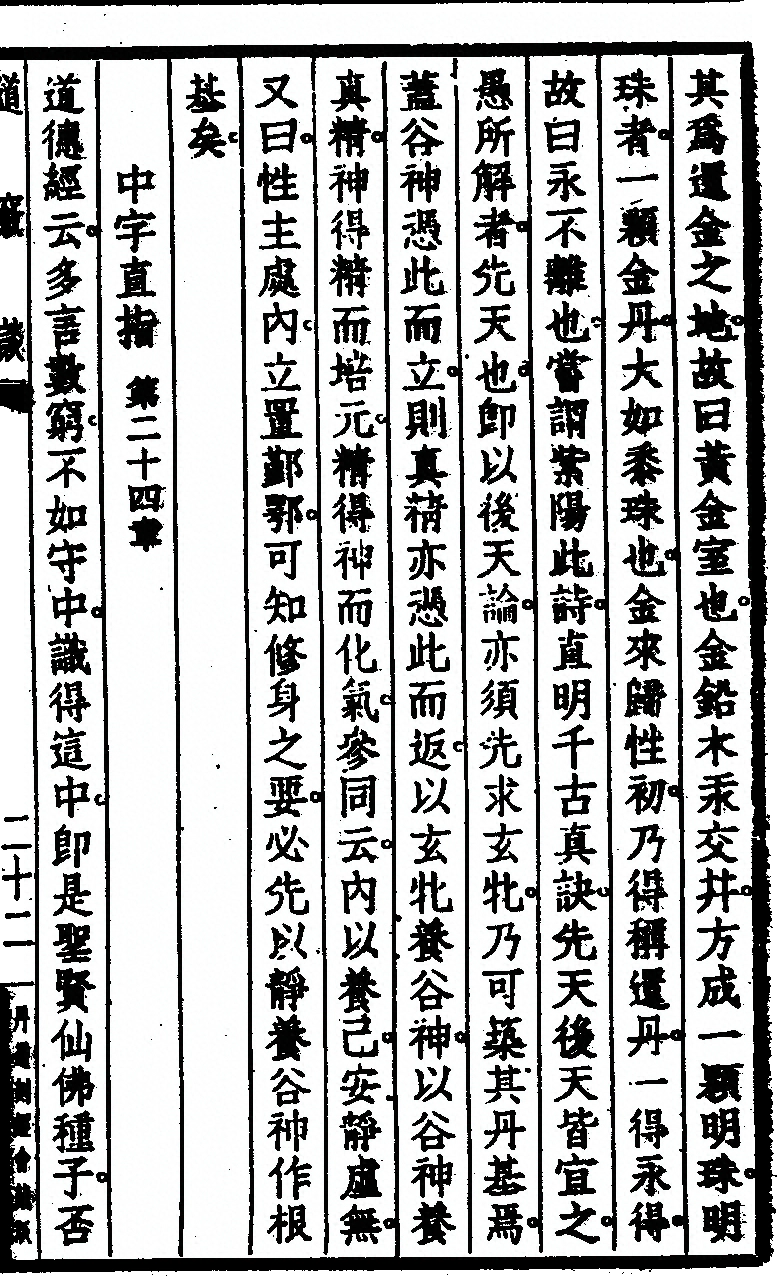 其爲還金之地故曰黃金室也金鉛木汞交井方成一顆明珠明
珠者一顆金丹大如黍珠也金來歸性初乃得稱還丹一得永得
故曰永不離也嘗謂紫陽此詩直明千古真訣先天後天皆宜之
愚所解者先天也卽以後天論亦須先求玄牝乃可築其丹基焉
蓋谷神憑此而立則真精亦憑此而返以玄牝養谷神以谷神養
真精神得精而培元精得神而化氣參同云內以養己安靜虛無
又曰性主處內立置鄞鄂可知修身之要必先以靜養谷神作根
基矣
中字直指 第二十四章
道德經云多言數窮不如守中識得這中卽是聖賢仙佛種子否
道竅談
二十二